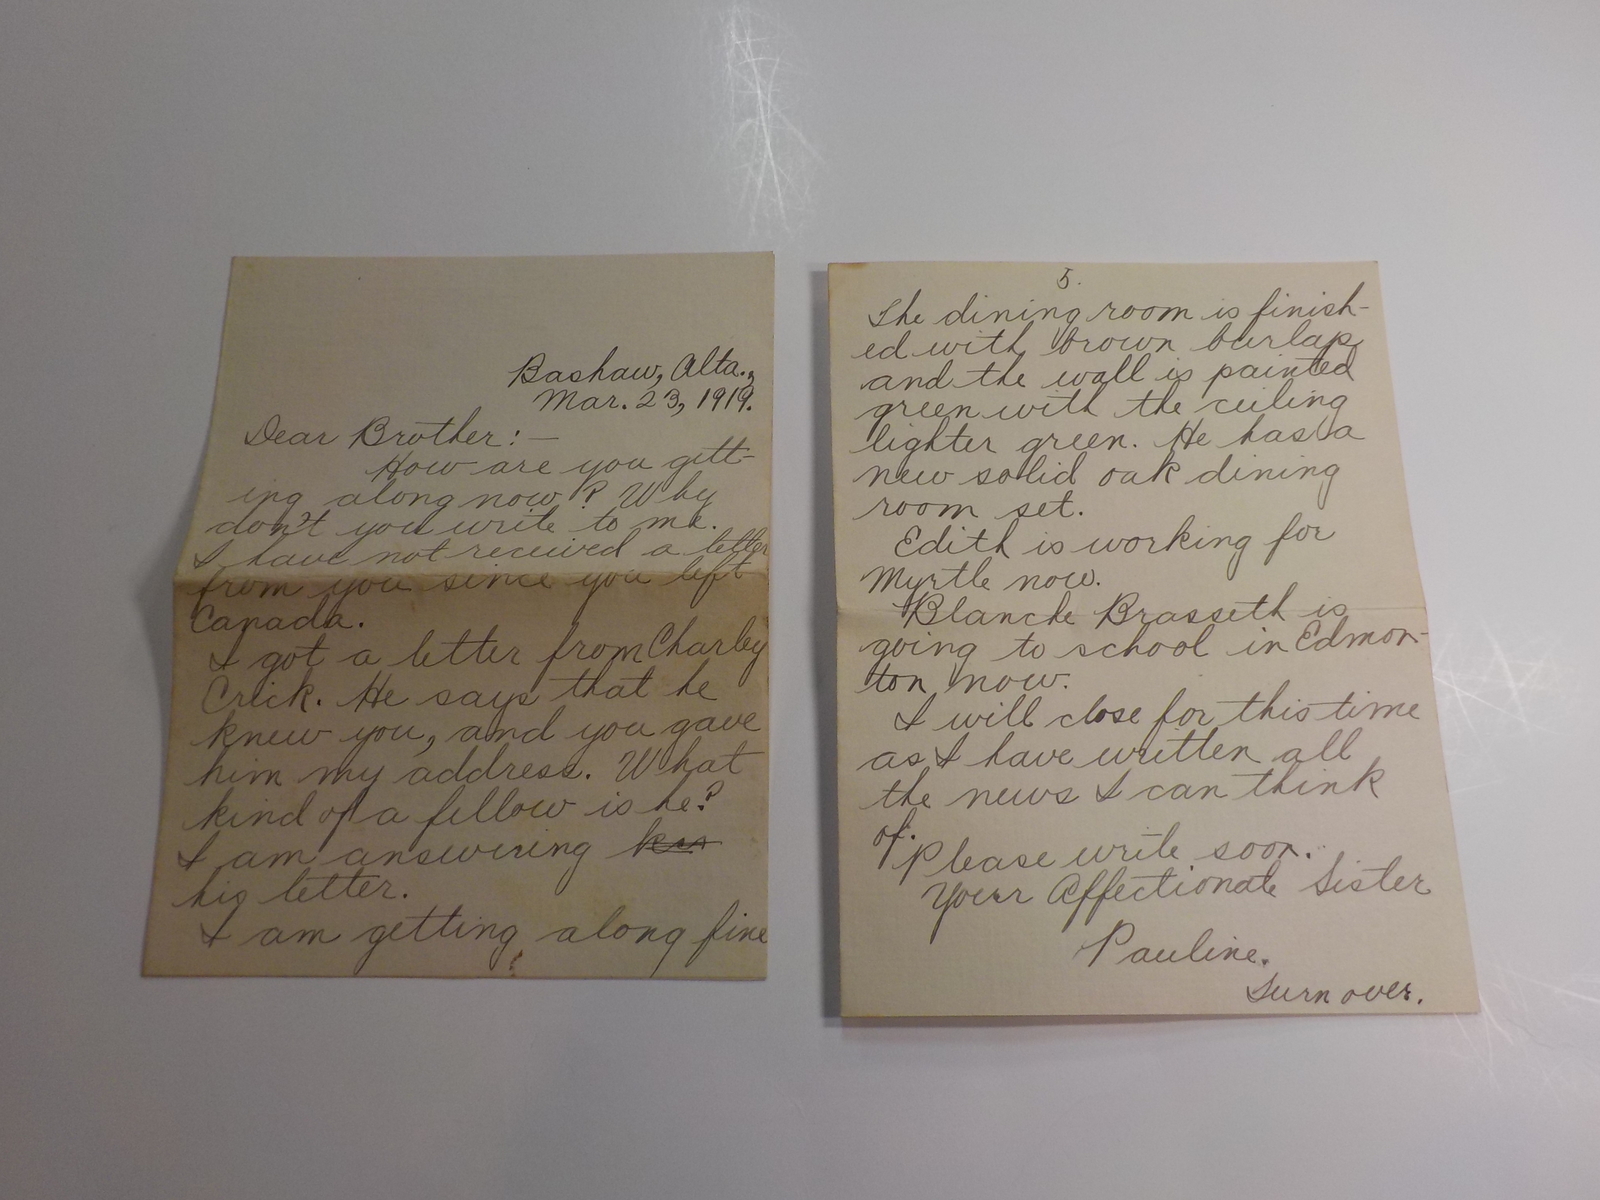 Bashaw, Alta.,
Mar. 23, 1919.
Dear Brother:—
How are you gett-
ing along now? Why
don't you write to me.
I have not received a letter
from you since you left
Canada.
I got a letter from Charley
Crick. He says that he
knew you, and you gave
him my address. What
kind of a fellow is he?
I am answering
his letter.
I am getting along fine
5.
The dining room is finish-
ed with brown burlap
and the wall is painted
green with the ceiling
lighter green. He has a
new solid oak dining
room set.
Edith is working for
Myrtle now.
Blanche Brasseth is
going to school in Edmon-
ton now.
I will close for this time
as I have written all
the news I can think
of.
Please write soon.
Your Affectionate Sister
Pauline.
Turn over.